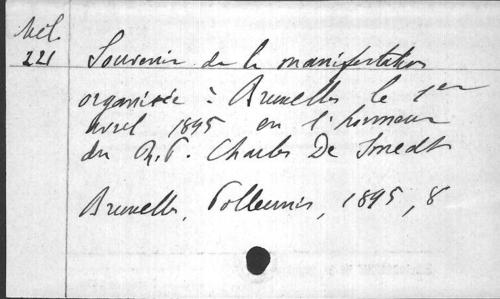 Mél.
221
Souvenir de la manifestation
organisée à Bruxelles le 1er
avril 1895 en l'honneur
du R.P. Charles De Smedt
Bruxelles, Polleunis, 1895, 8